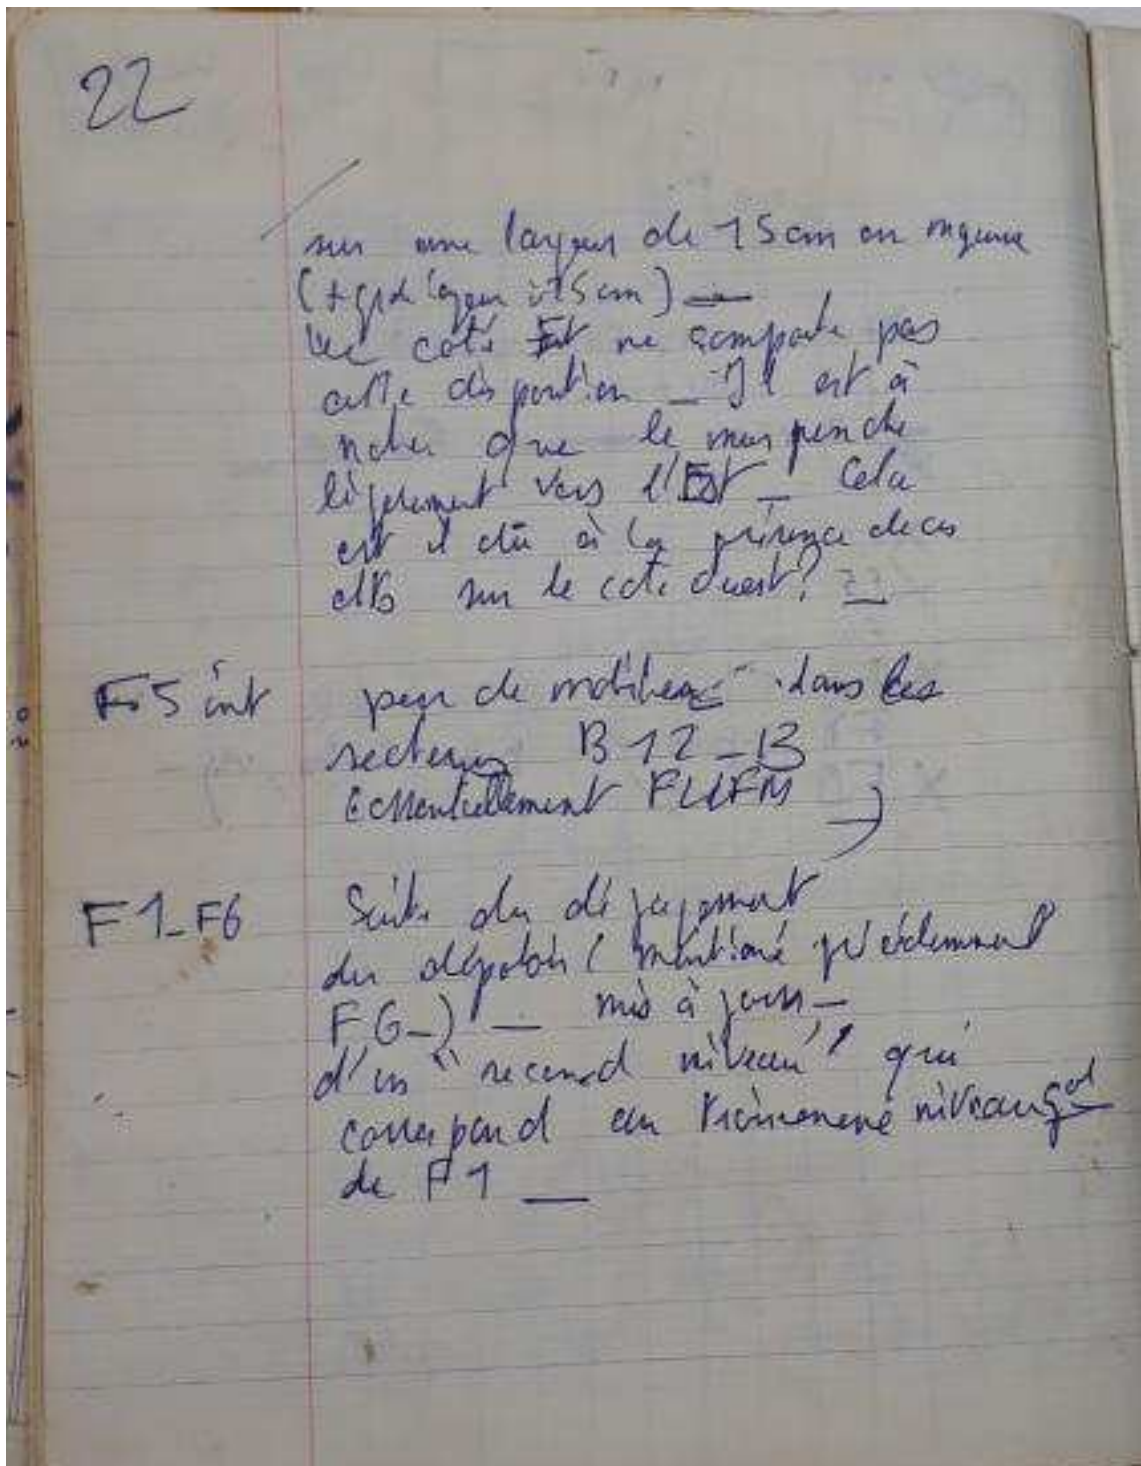 22
sur une largeur de 15cm en moyenne
(+ grde largeur : 15cm) —
Le coté Est ne comporte pas
cette disposition _ Il est à
noter que le mur penche
légerement vers l'Est _ Cela
est il dû à la présence de ces
sur le coté Ouest? _
F5 int peu de mobilier dans les
secteurs B 12_13
Essentiellement
F1_F6 Suite du dégagement
du dépotoir (mentioné précédemment
F6_) — mis à jour _
d'un "second niveau" qui
correspond au niveau
de F1 __